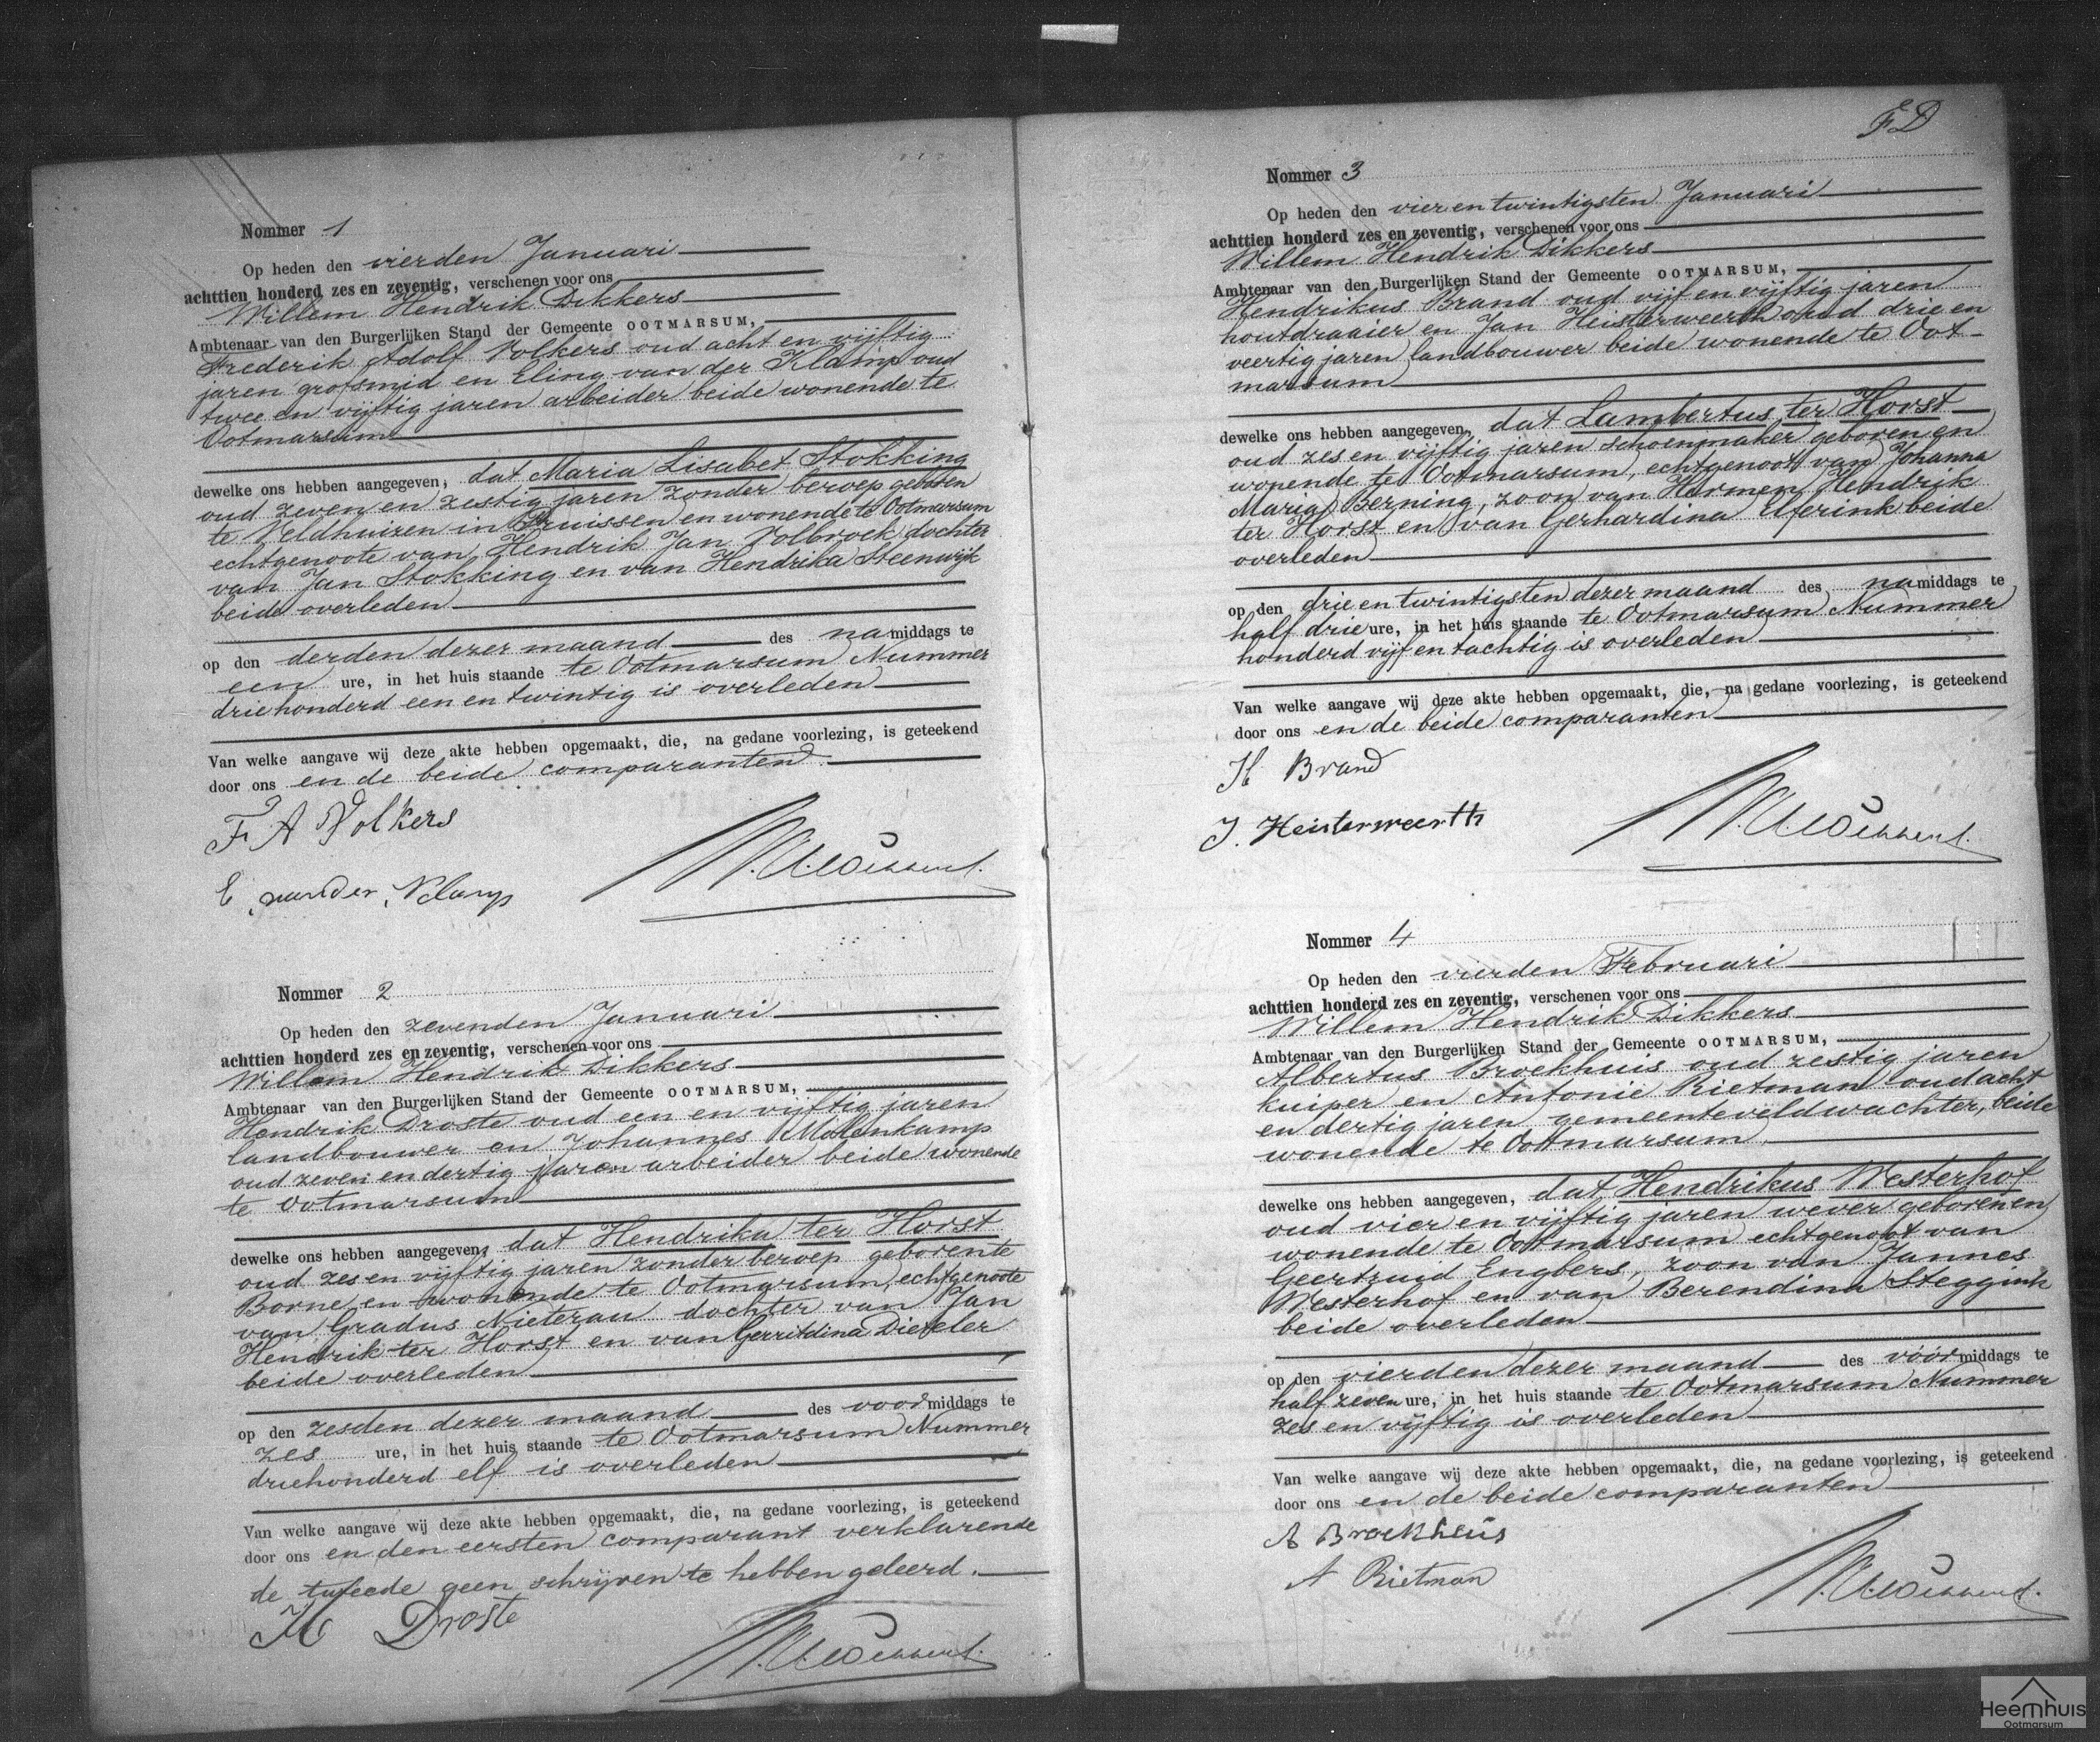 Nommer 1
Op heden den vierden Januari
achttien honderd zes en zeventig, verschenen voor ons
Willem Hendrik Dikkers
Ambtenaar van den Burgerlijken Stand der Gemeente OOTMARSUM,
Frederik Adolf Volkers oud acht en vijftig
jaren grofsmid en Eling van der Klamp oud
twee en vijftig jaren arbeider beide wonende te
Ootmarsum
dewelke ons hebben aangegeven, dat Maria Lisabet Stokking
oud zeven en zestig jaren zonder beroep geboren
te Veldhuizen in Pruissen en wonende te Ootmarsum
echtgenoote van Hendrik Jan Volbroek dochter
van Jan Stokking en van Hendrika Steenwijk
beide overleden
op den derden dezer maand des namiddags te
een ure, in het huis staande te Ootmarsum Nummer
driehonderd een en twintig is overleden
Van welke aangave wij deze akte hebben opgemaakt, die, na gedane voorlezing, is geteekend
door ons en de beide comparanten
F A Volkers
E van der Klamp
Nommer 2
Op heden den zevenden Januari
achttien honderd zes en zeventig, verschenen voor ons
Willem Hendrik Dikkers
Ambtenaar van den Burgerlijken Stand der Gemeente OOTMARSUM,
Hendrik Droste oud een en vijftig jaren
landbouwer en Johannes Molenkamp
oud zeven en dertig jaren arbeider beide wonende
te Ootmarsum
dewelke ons hebben aangegeven, dat Hendrika ter Horst
oud zes en vijftig jaren zonder beroep geboren te
Borne en wonende te Ootmarsum, echtgenoote
van Gradus Nieterau dochter van Jan
Hendrik ter Horst en van Gerritdina
beide overleden
op den zesden dezer maand des voormiddags te
zes ure, in het huis staande te Ootmarsum Nummer
driehonderd elf is overleden
Van welke aangave wij deze akte hebben opgemaakt, die, na gedane voorlezing, is geteekend
door ons en den eersten comparant verklarende
de tweede geen schrijven te hebben geleerd.
H Droste
F D
Nommer 3
Op heden den vier en twintigsten Januari
achttien honderd zes en zeventig, verschenen voor ons
Willem Hendrik Dikkers
Ambtenaar van den Burgerlijken Stand der Gemeente OOTMARSUM,
Hendrikus Brand oud vijf en vijftig jaren
houtdraaier en Jan Heisterweerth oud drie en
veertig jaren landbouwer beide wonende te Oot-
marsum
dewelke ons hebben aangegeven, dat Lambertus ter Horst
oud zes en vijftig jaren schoenmaker geboren en
wonende te Ootmarsum, echtgenoot van Johanna
Maria Berning, zoon van Harmen Hendrik
ter Horst en van Gerhardina Elferink beide
overleden
op den drie en twintigsten dezer maand des namiddags te
half drie ure, in het huis staande te Ootmarsum Nummer
honderd vijf en tachtig is overleden
Van welke aangave wij deze akte hebben opgemaakt, die, na gedane voorlezing, is geteekend
door ons en de beide comparanten
H Brand
J. Heisterweerth
Nommer 4
Op heden den vierden Februari
achttien honderd zes en zeventig, verschenen voor ons
Willem Hendrik Dikkers
Ambtenaar van den Burgerlijken Stand der Gemeente OOTMARSUM,
Albertus Broekhuis oud zestig jaren
kuiper en Antonie Rietman oud acht
en dertig jaren gemeenteveldwachter, beide
wonende te Ootmarsum
dewelke ons hebben aangegeven, dat Hendrikus Westerhof
oud vier en vijftig jaren wever geboren en
wonende te Ootmarsum echtgenoot van
Geertruid Engbers, zoon van Jannes
Westerhof en van Berendina Steggink
beide overleden
op den vierden dezer maand des vóórmiddags te
half zeven ure, in het huis staande te Ootmarsum Nummer
zes en vijftig is overleden
Van welke aangave wij deze akte hebben opgemaakt, die, na gedane voorlezing, is geteekend
door ons en de beide comparanten
A Broekhuis
A Rietman
Heemhuis
Ootmarsum